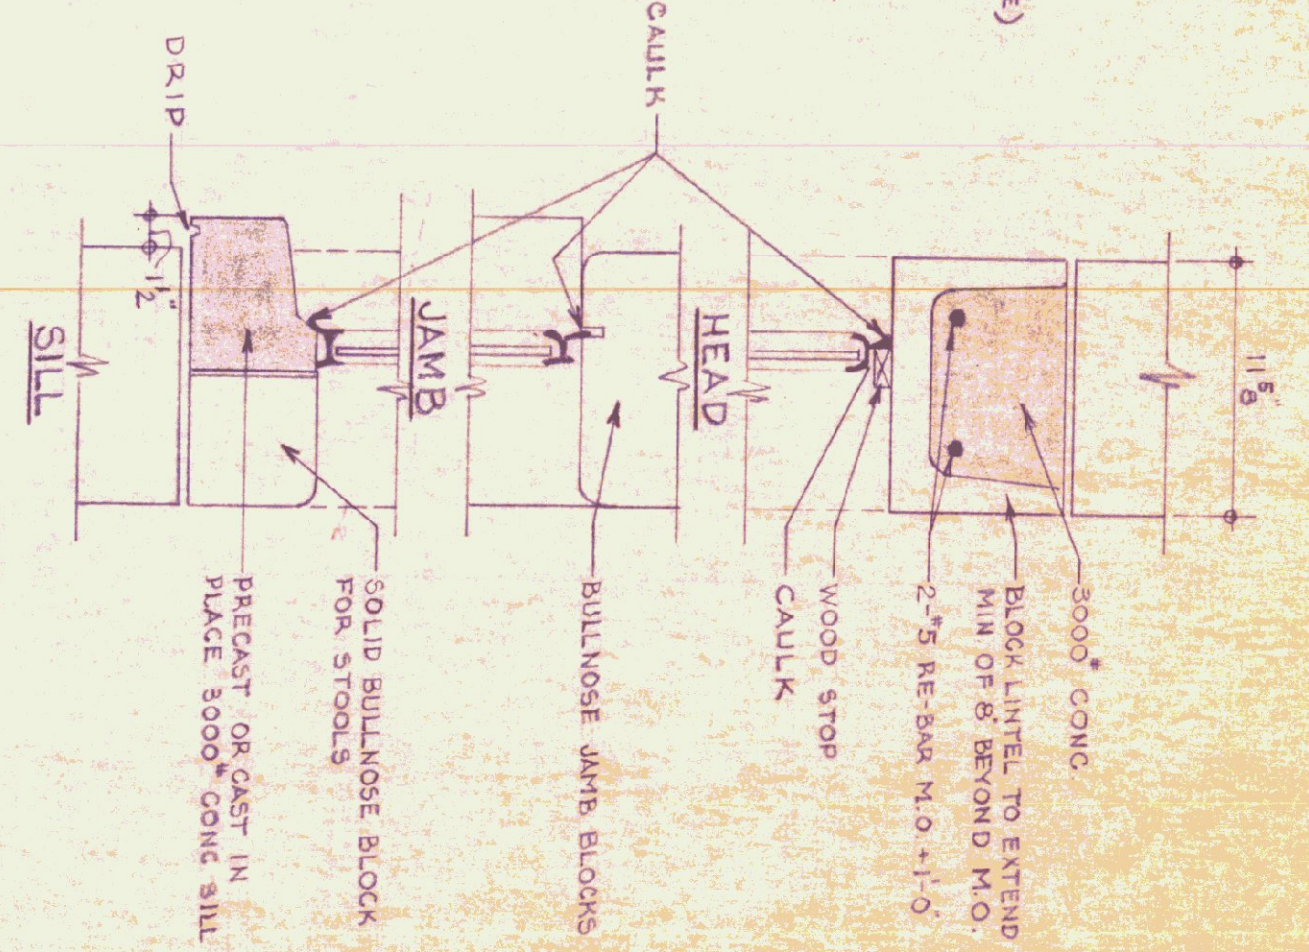 E)
CAULK
DRIP
11 5/8"
3000# CONC.
BLOCK LINTEL TO EXTEND
MIN OF 8" BEYOND M.O.
2-#5 RE-BAR M.O + 1'-0"
WOOD STOP
CAULK
HEAD
BULLNOSE JAMB BLOCKS
JAMB
SOLID BULLNOSE BLOCK
FOR STOOLS
PRECAST OR CAST IN
PLACE 3000# CONC SILL
1 1/2"
SILL